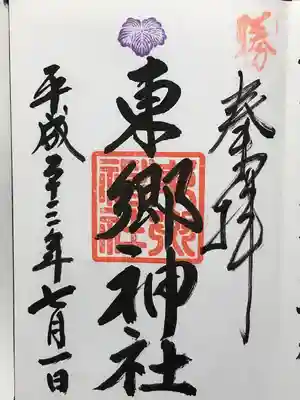 勝
奉拝
東郷神社
平成二十二年七月一日